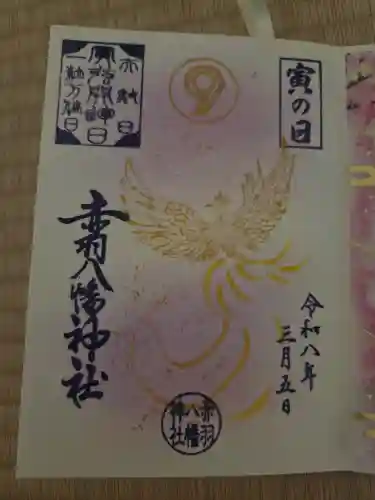 寅の日
9
天赦日
寅
一粒万倍日
赤羽八幡神社
令和八年
三月五日
赤羽
八幡
神社